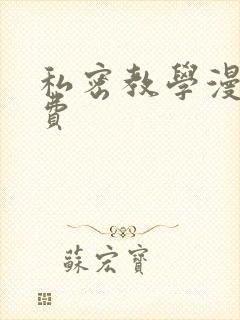 私密教學漫
費
蘇宏寶